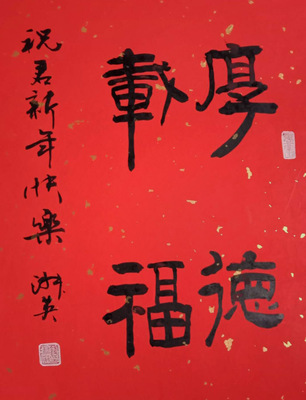 厚德
載福
祝君新年快樂 淑英